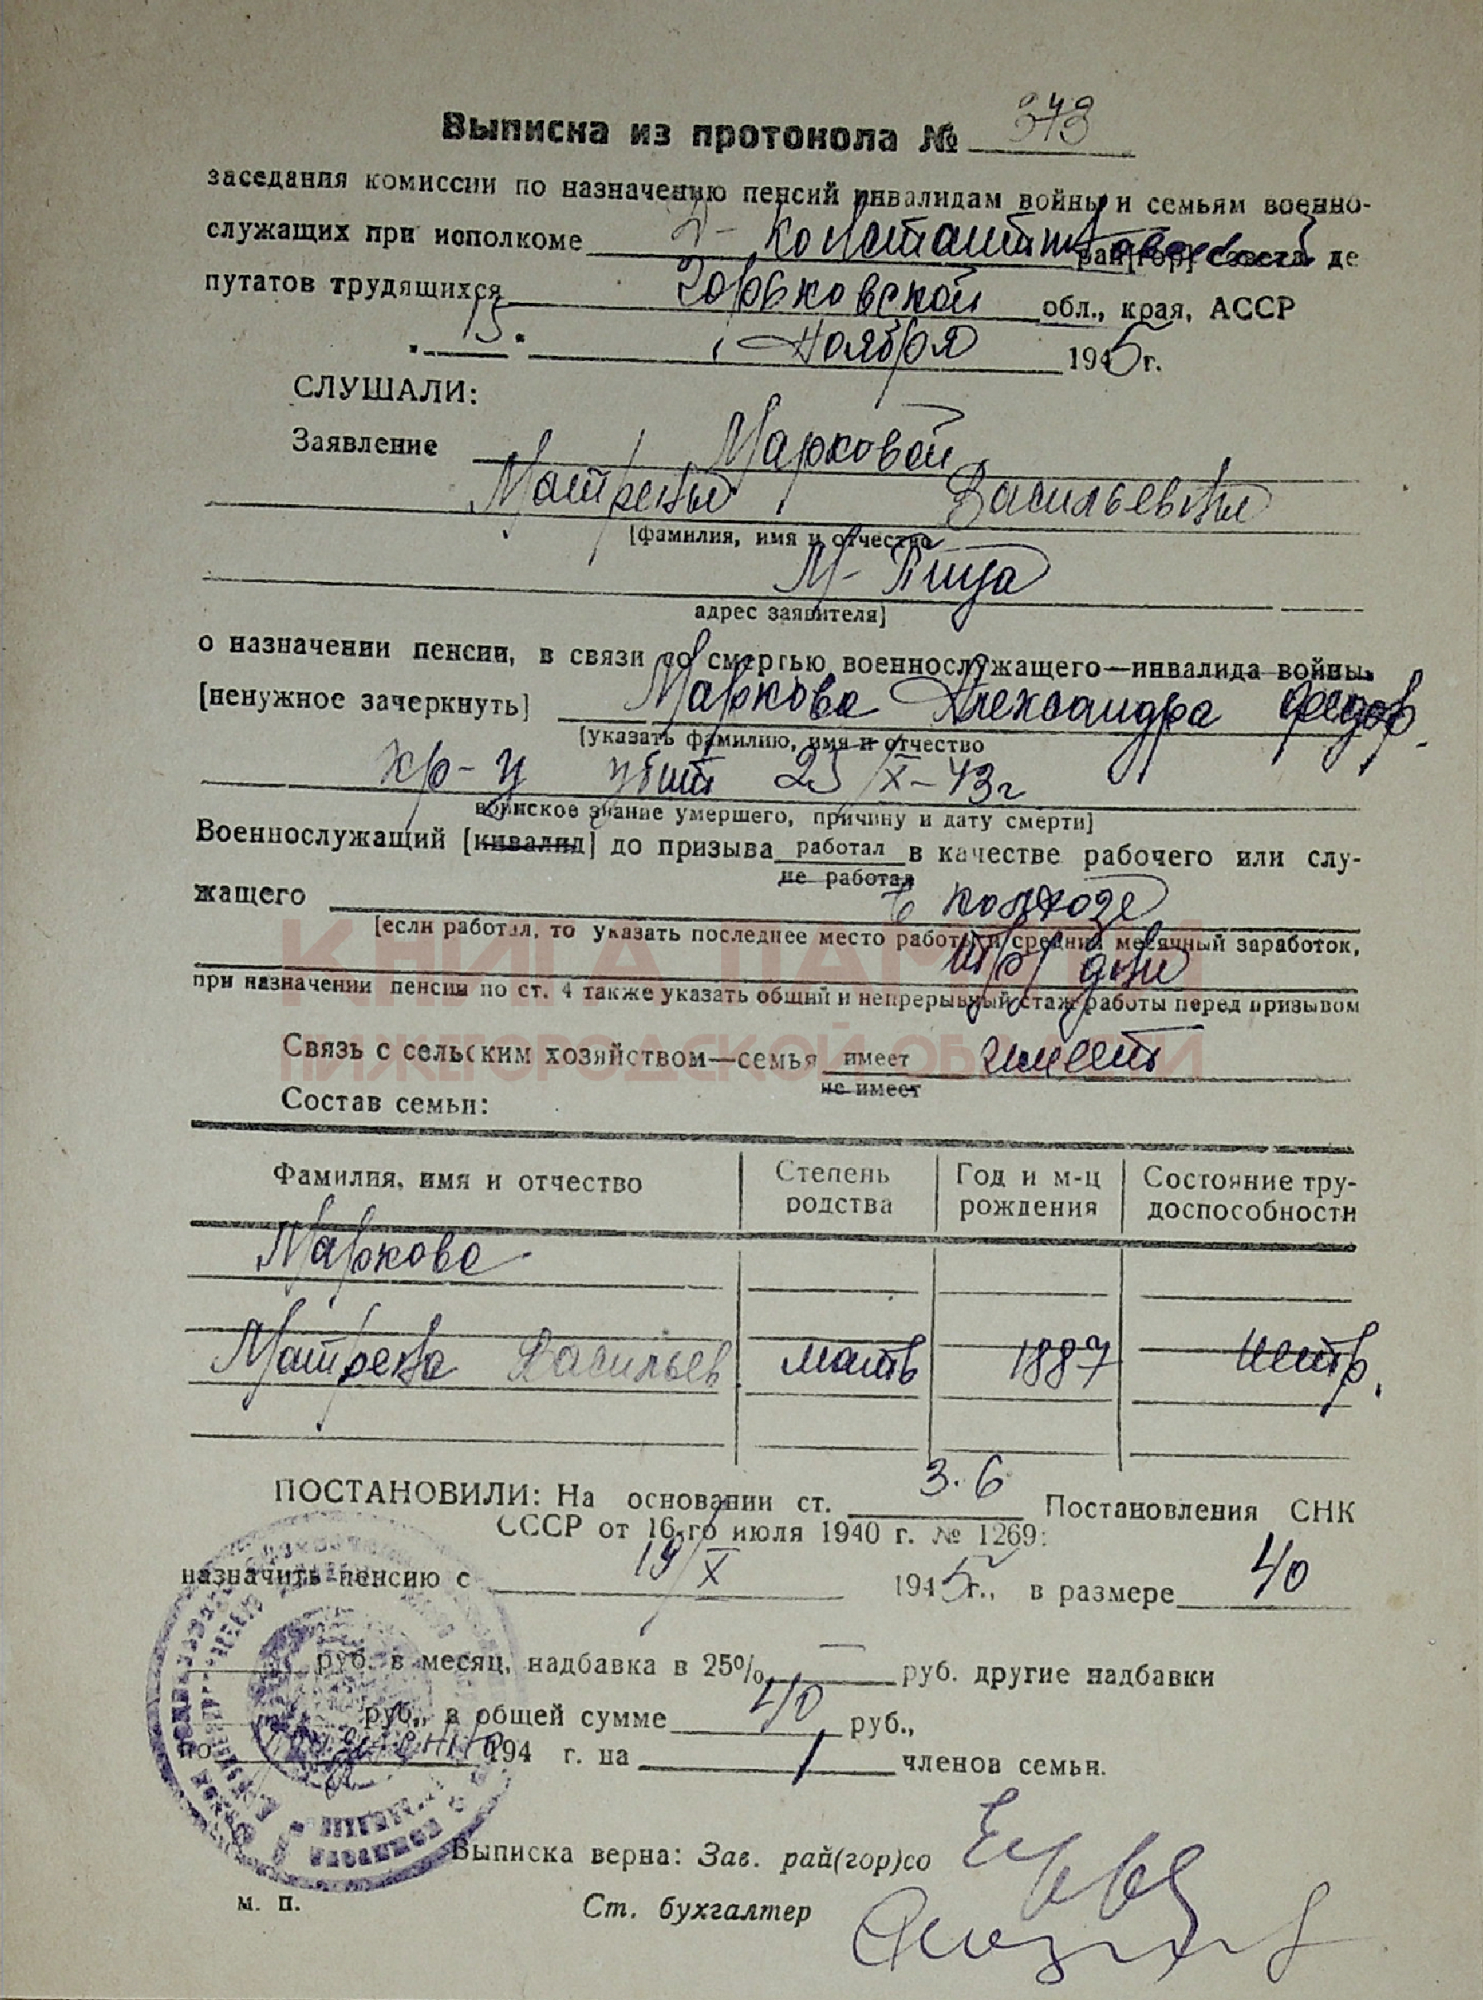 Выписка из протокола № 373
заседания комиссии по назначению пенсий инвалидам войны и семьям военно-
служащих при исполкоме Д-Константиновского рай[гор] совета де
путатов трудящихся Горьковской обл., края, АССР
"15" ноября 1945 г.
СЛУШАЛИ:
Заявление Марковой
Матрены Васильевны
[фамилия, имя и отчество
М-Пица
адрес заявителя]
о назначении пенсии, в связи со смертью военнослужащего—инвалида войны
[ненужное зачеркнуть] Маркова Александра Федор.
[указать фамилию, имя и отчество
кр-ц убит 23/X-43г
воинское звание умершего, причину и дату смерти]
Военнослужащий [инвалид] до призыва работал в качестве рабочего или слу-
не работал
жащего в колхозе
[если работал, то указать последнее место работы и средний месячный заработок,
тр/дни
при назначении пенсии по ст. 4 также указать общий и непрерывный стаж работы перед призывом
КНИГА ПАМЯТИ
НИЖЕГОРОДСКОЙ ОБЛАСТИ
Связь с сельским хозяйством—семья имеет имеет
не имеет
Состав семьи:
Фамилия, имя и отчество Степень родства Год и м-ц рождения Состояние тру-доспособности
Маркова
Матрена Васильев. мать 1887 нетр.
ПОСТАНОВИЛИ: На основании ст. 3.6 Постановления СНК
СССР от 16-го июля 1940 г. № 1269:
назначить пенсию с 19/X 1945 г., в размере 40
руб. в месяц, надбавка в 25% — руб. другие надбавки
руб., в общей сумме 40 руб.,
по 194 г. на 1 членов семьи.
Выписка верна: Зав. рай(гор)со
м. п. Ст. бухгалтер